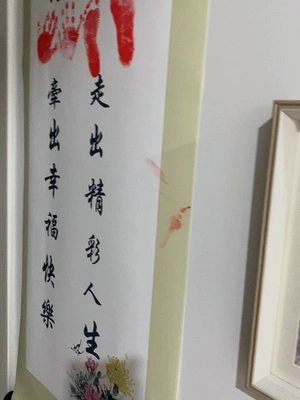 走出精彩人生
牽出幸福快樂